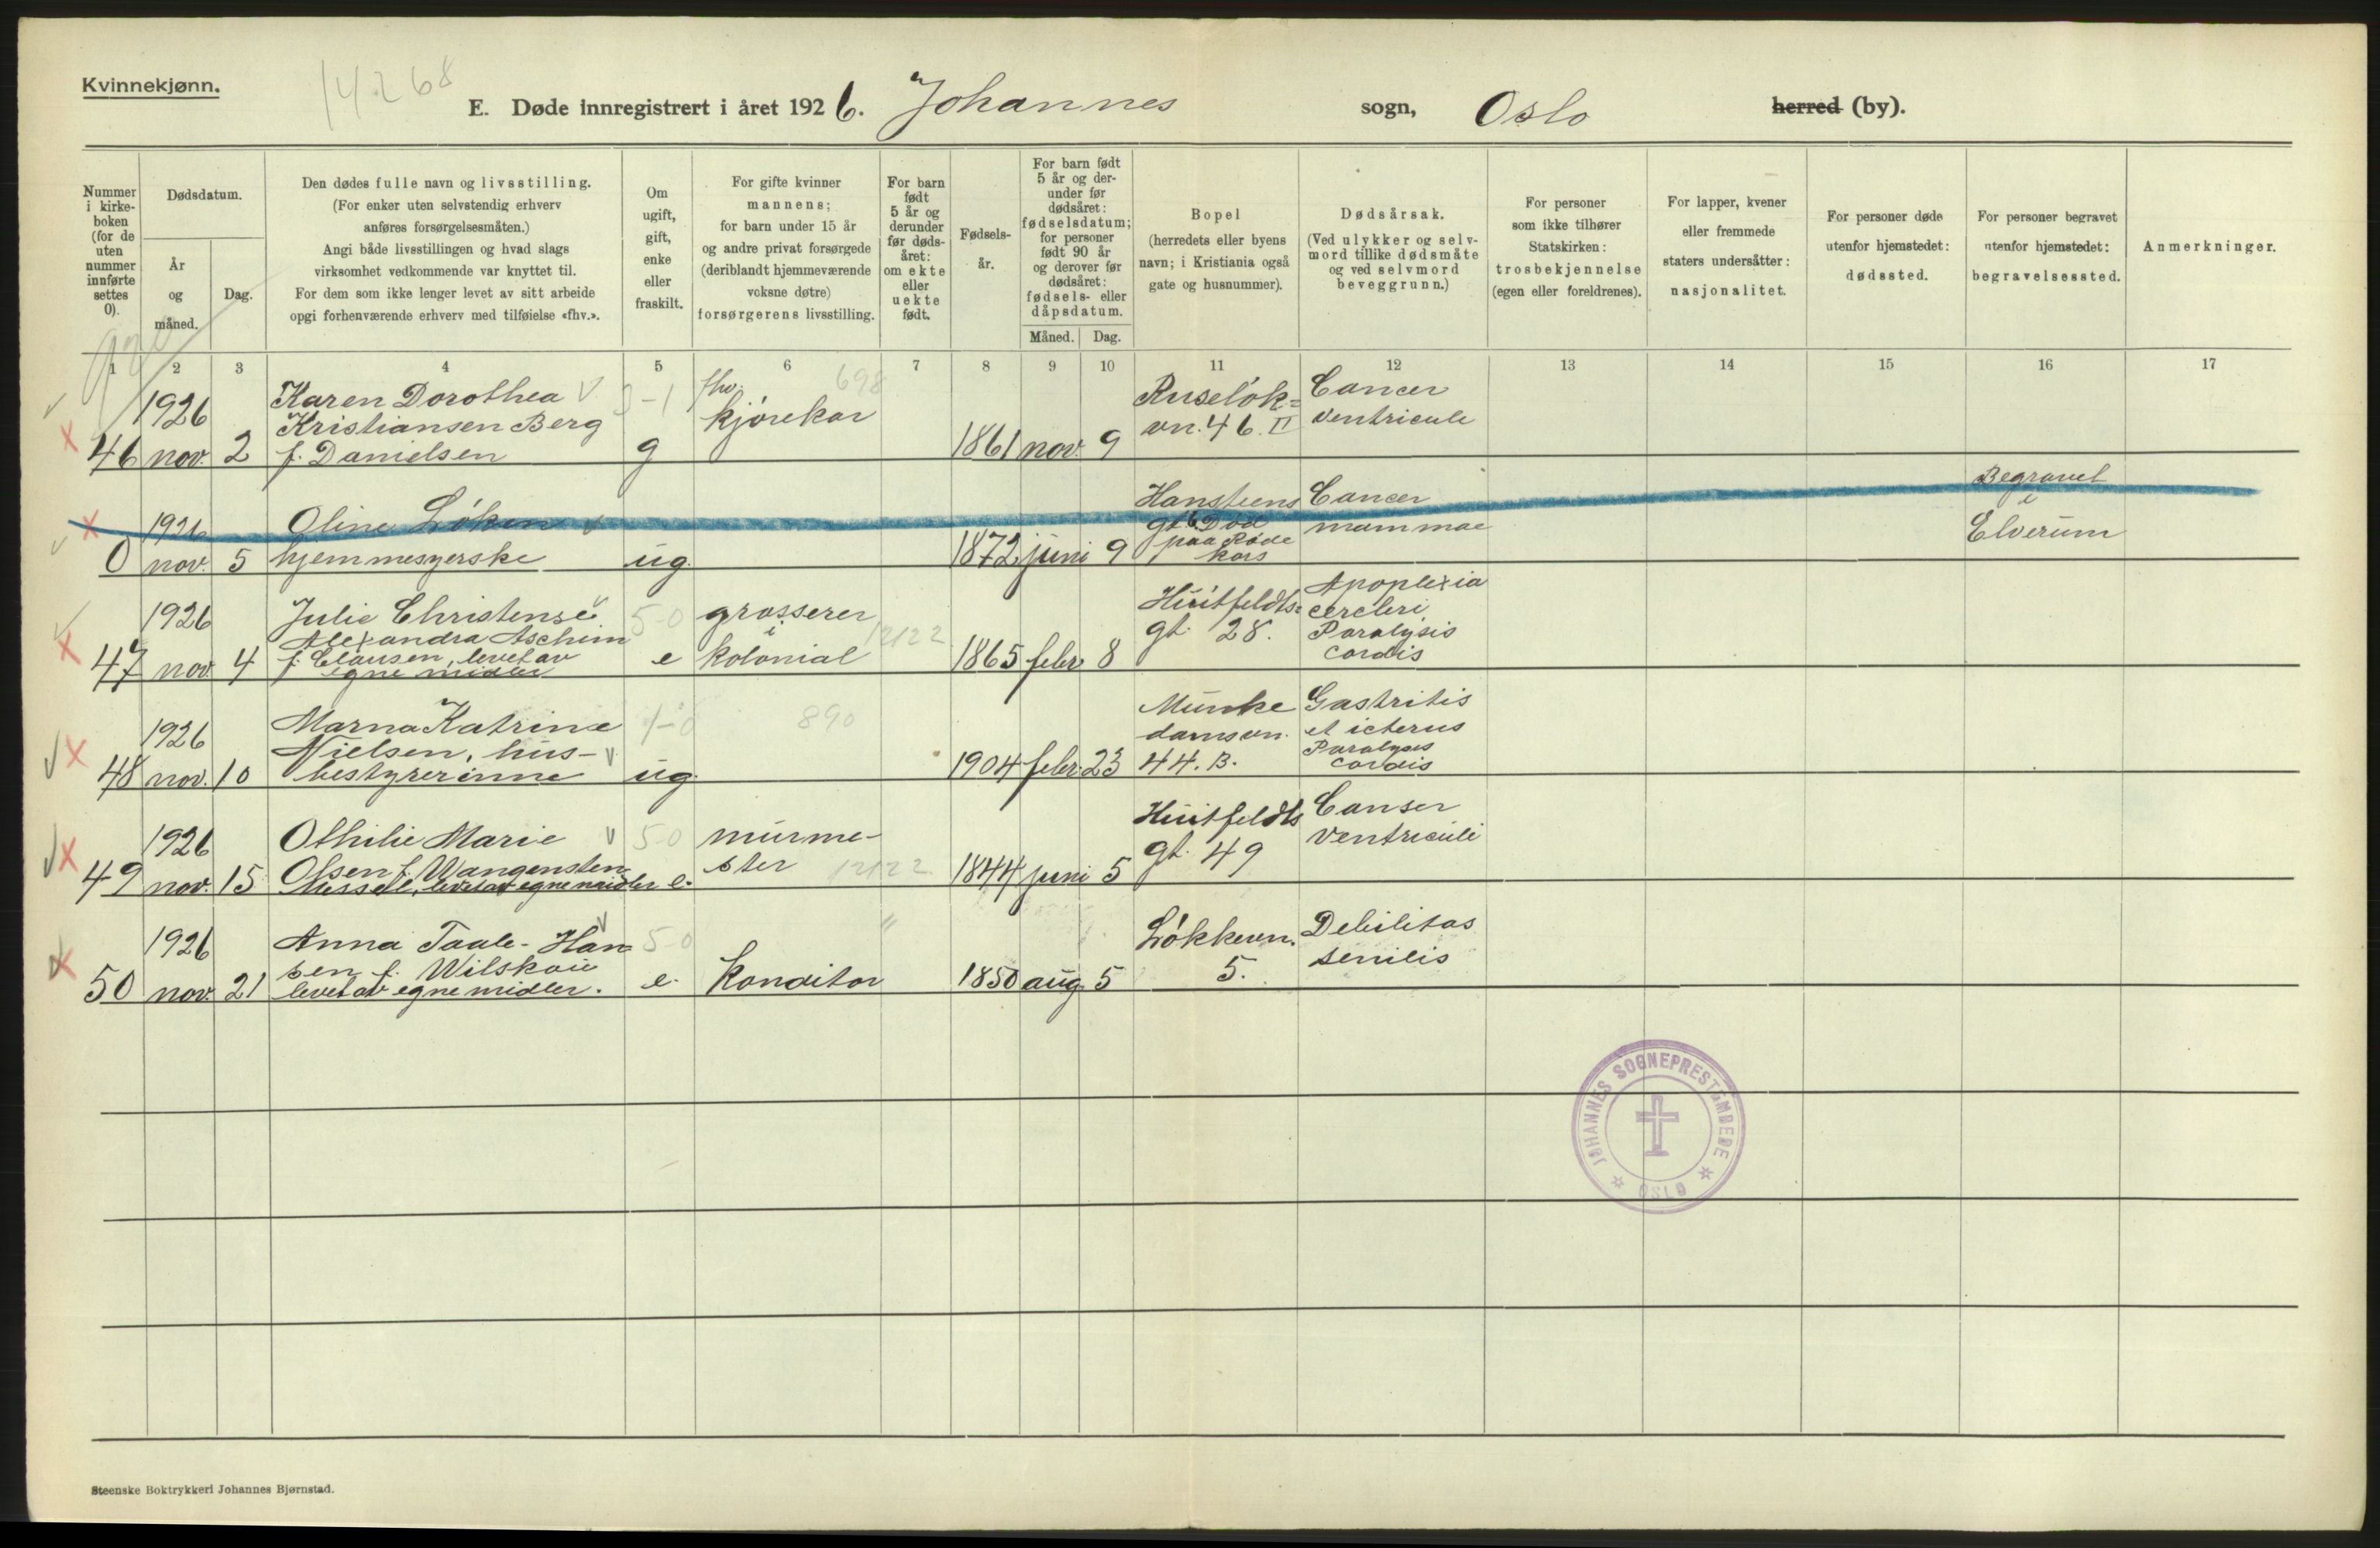 Kvinnekjønn.
14.268
E. Døde innregistrert i året 1926. Johannes sogn, Oslo herred (by).
Nummer i kirke-boken (for de uten nummer innførte settes 0).
Dødsdatum.
År og måned.
Dag.
Den dødes fulle navn og livsstilling.
(For enker uten selvstendig erhverv
anføres forsørgelsesmåten.)
Angi både livsstillingen og hvad slags
virksomhet vedkommende var knyttet til.
For dem som ikke lenger levet av sitt arbeide
opgi forhenværende erhverv med tilføielse «fhv.».
Om ugift, gift, enke eller fraskilt.
For gifte kvinner
mannens;
for barn under 15 år
og andre privat forsørgede
(deriblandt hjemmeværende
voksne døtre)
forsørgerens livsstilling.
For barn født 5 år og derunder før døds-året: om ekte eller uekte født.
Fødsels-år.
For barn født 5 år og der-under før dødsåret: fødselsdatum; for personer født 90 år og derover før dødsåret: fødsels- eller dåpsdatum.
Måned. Dag.
Bopel
(herredets eller byens
navn; i Kristiania også
gate og husnummer).
Dødsårsak.
(Ved ulykker og selv-
mord tillike dødsmåte
og ved selvmord
beveggrunn.)
For personer
som ikke tilhører
Statskirken:
trosbekjennelse
(egen eller foreldrenes).
For lapper, kvener
eller fremmede
staters undersåtter:
nasjonalitet.
For personer døde
utenfor hjemstedet:
dødssted.
For personer begravet
utenfor hjemstedet:
begravelsessted.
Anmerkninger.
1 2 3 4 5 6 7 8 9 10 11 12 13 14 15 16 17
1926 Karen Dorothea fhv. 698 Ruseløk= Cancer
Kristiansen Berg kjørekar vn. 46. II ventricule
46 nov. 2 f. Danielsen g 1861 nov. 9
Hansteens Cancer Begravet
1926 Oline Løken gt. 6 Død mammae i
paa Røde Elverum
0 nov. 5 hjemmesyerske ug. 1872 juni 9 kors
1926 Julie Christense 5-0 grosserer Huitfeldts= Apoplexia
Alexandra Aschim i 12122 gt. 28. cerebri
47 nov. 4 f. Clausen, levet av e kolonial 1865 febr. 8 Paralysis
egne midler cordis
1926 Marna Katrine 1-0 890 Munke Gastritis
Nielsen, hus- damsvn. et icterus
48 nov. 10 bestyrerinne ug. 1904 febr. 23 44. B. Paralyses
cordis
1926 Othilie Marie 50 murme- Huitfeldts Canser
Olsen f. Wangensten ster 12122 gt. 49 ventriculi
49 nov. 15 levet av egne midler e. 1844 juni 5
1926 Anna Taale-Han= 5-0 " Løkkevn. Debilitas
sen f. Wilskow 5. senilis
50 nov. 21 levet av egne midler. e. Konditor 1850 aug. 5
JOHANNES SOGNEPRESTEMBEDE
OSLO
Steenske Boktrykkeri Johannes Bjørnstad.